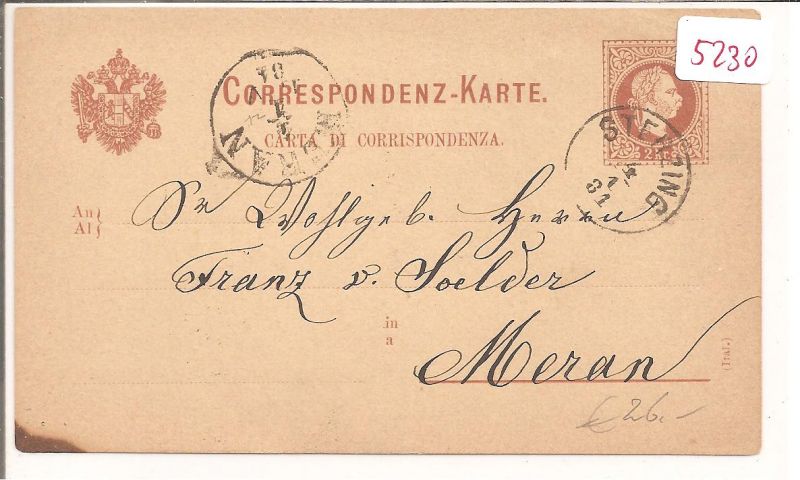 5230
CORRESPONDENZ-KARTE.
CARTA DI CORRISPONDENZA.
MERAN
STERZING
81
2 KR.
An
Al
Sr Wohlgeb. Herrn
Franz v. Soelder
in
a
Meran
(Ital.)
€ 26.-